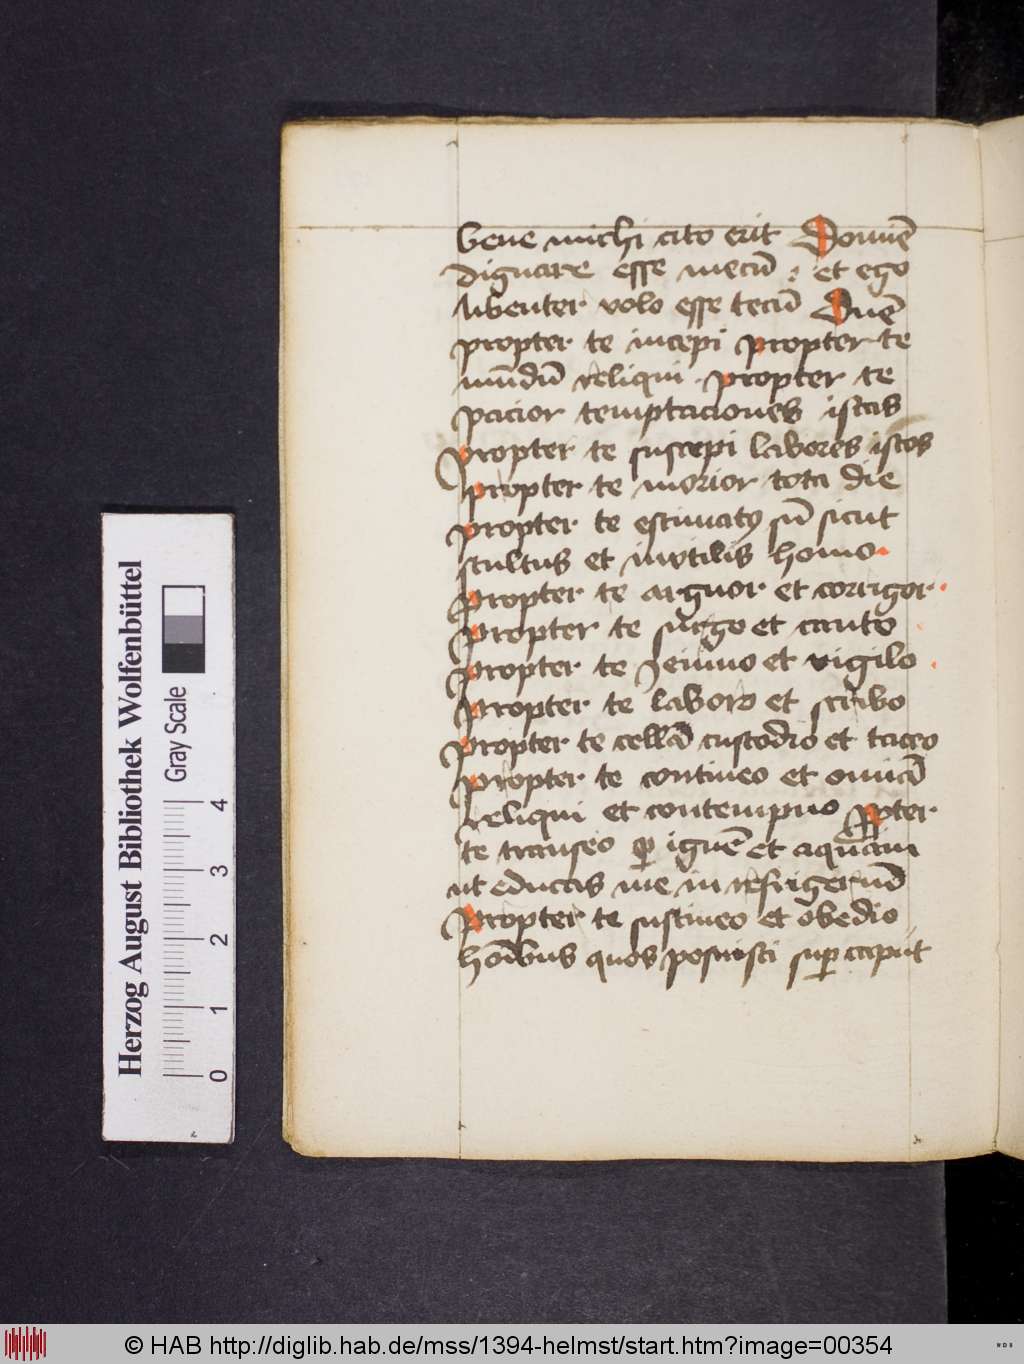 bene michi cito erit Domiē
dignare esse mecū ; et ego
libenter volo esse tecū Dnē
propter te incepi propter te
mūdū reliqui . propter te
pacior temptaciones istas
propter te suscepi labores istos
propter te morior tota die
propter te estimatꝰ sū sicut
stultus et invtilis homo.
propter te arguor et corrigor.
propter te surgo et canto.
propter te Jeiuno et vigilo.
propter te laboro et scribo
propter te cellā custodio et taceo
propter te contineo et omīa
reliqui et contempno ꝓpter
te transeo ꝑ ignē et aquam
ut educas me in refrigeriū
Propter te sustineo et obedio
hoībus quos posuisti suꝑ caput
Herzog August Bibliothek Wolfenbüttel
Gray Scale
0 1 2 3 4
© HAB http://diglib.hab.de/mss/1394-helmst/start.htm?image=00354